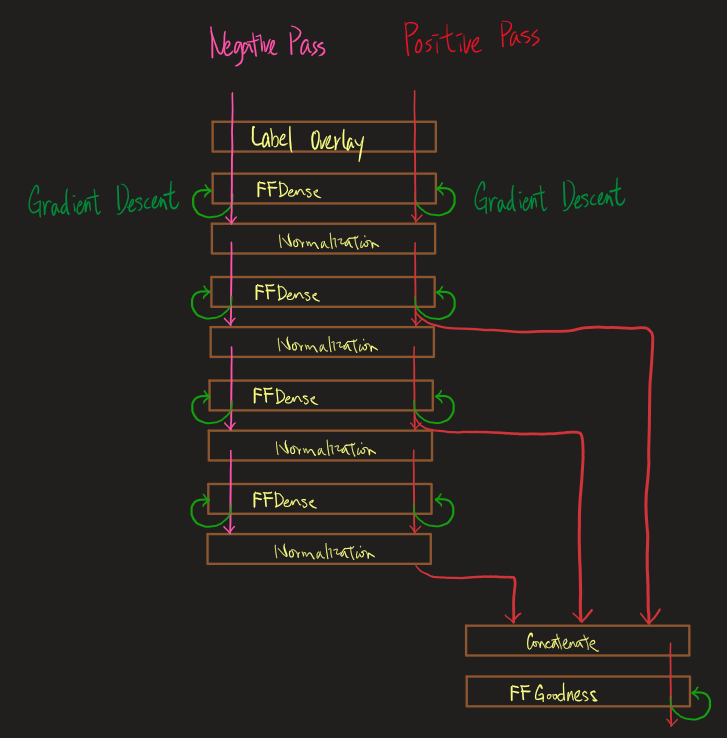 Negative Pass
Positive Pass
Label Overlay
Gradient Descent
FFDense
Gradient Descent
Normalization
FFDense
Normalization
FFDense
Normalization
FFDense
Normalization
Concatenate
FF Goodness